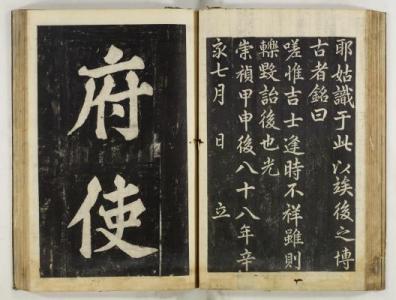 耶姑識于此以竢後之博
古者銘曰
嗟惟吉士逢時不祥雖則
轢詒後也光
崇禎甲申後八十八年辛
亥七月 日 立
府使